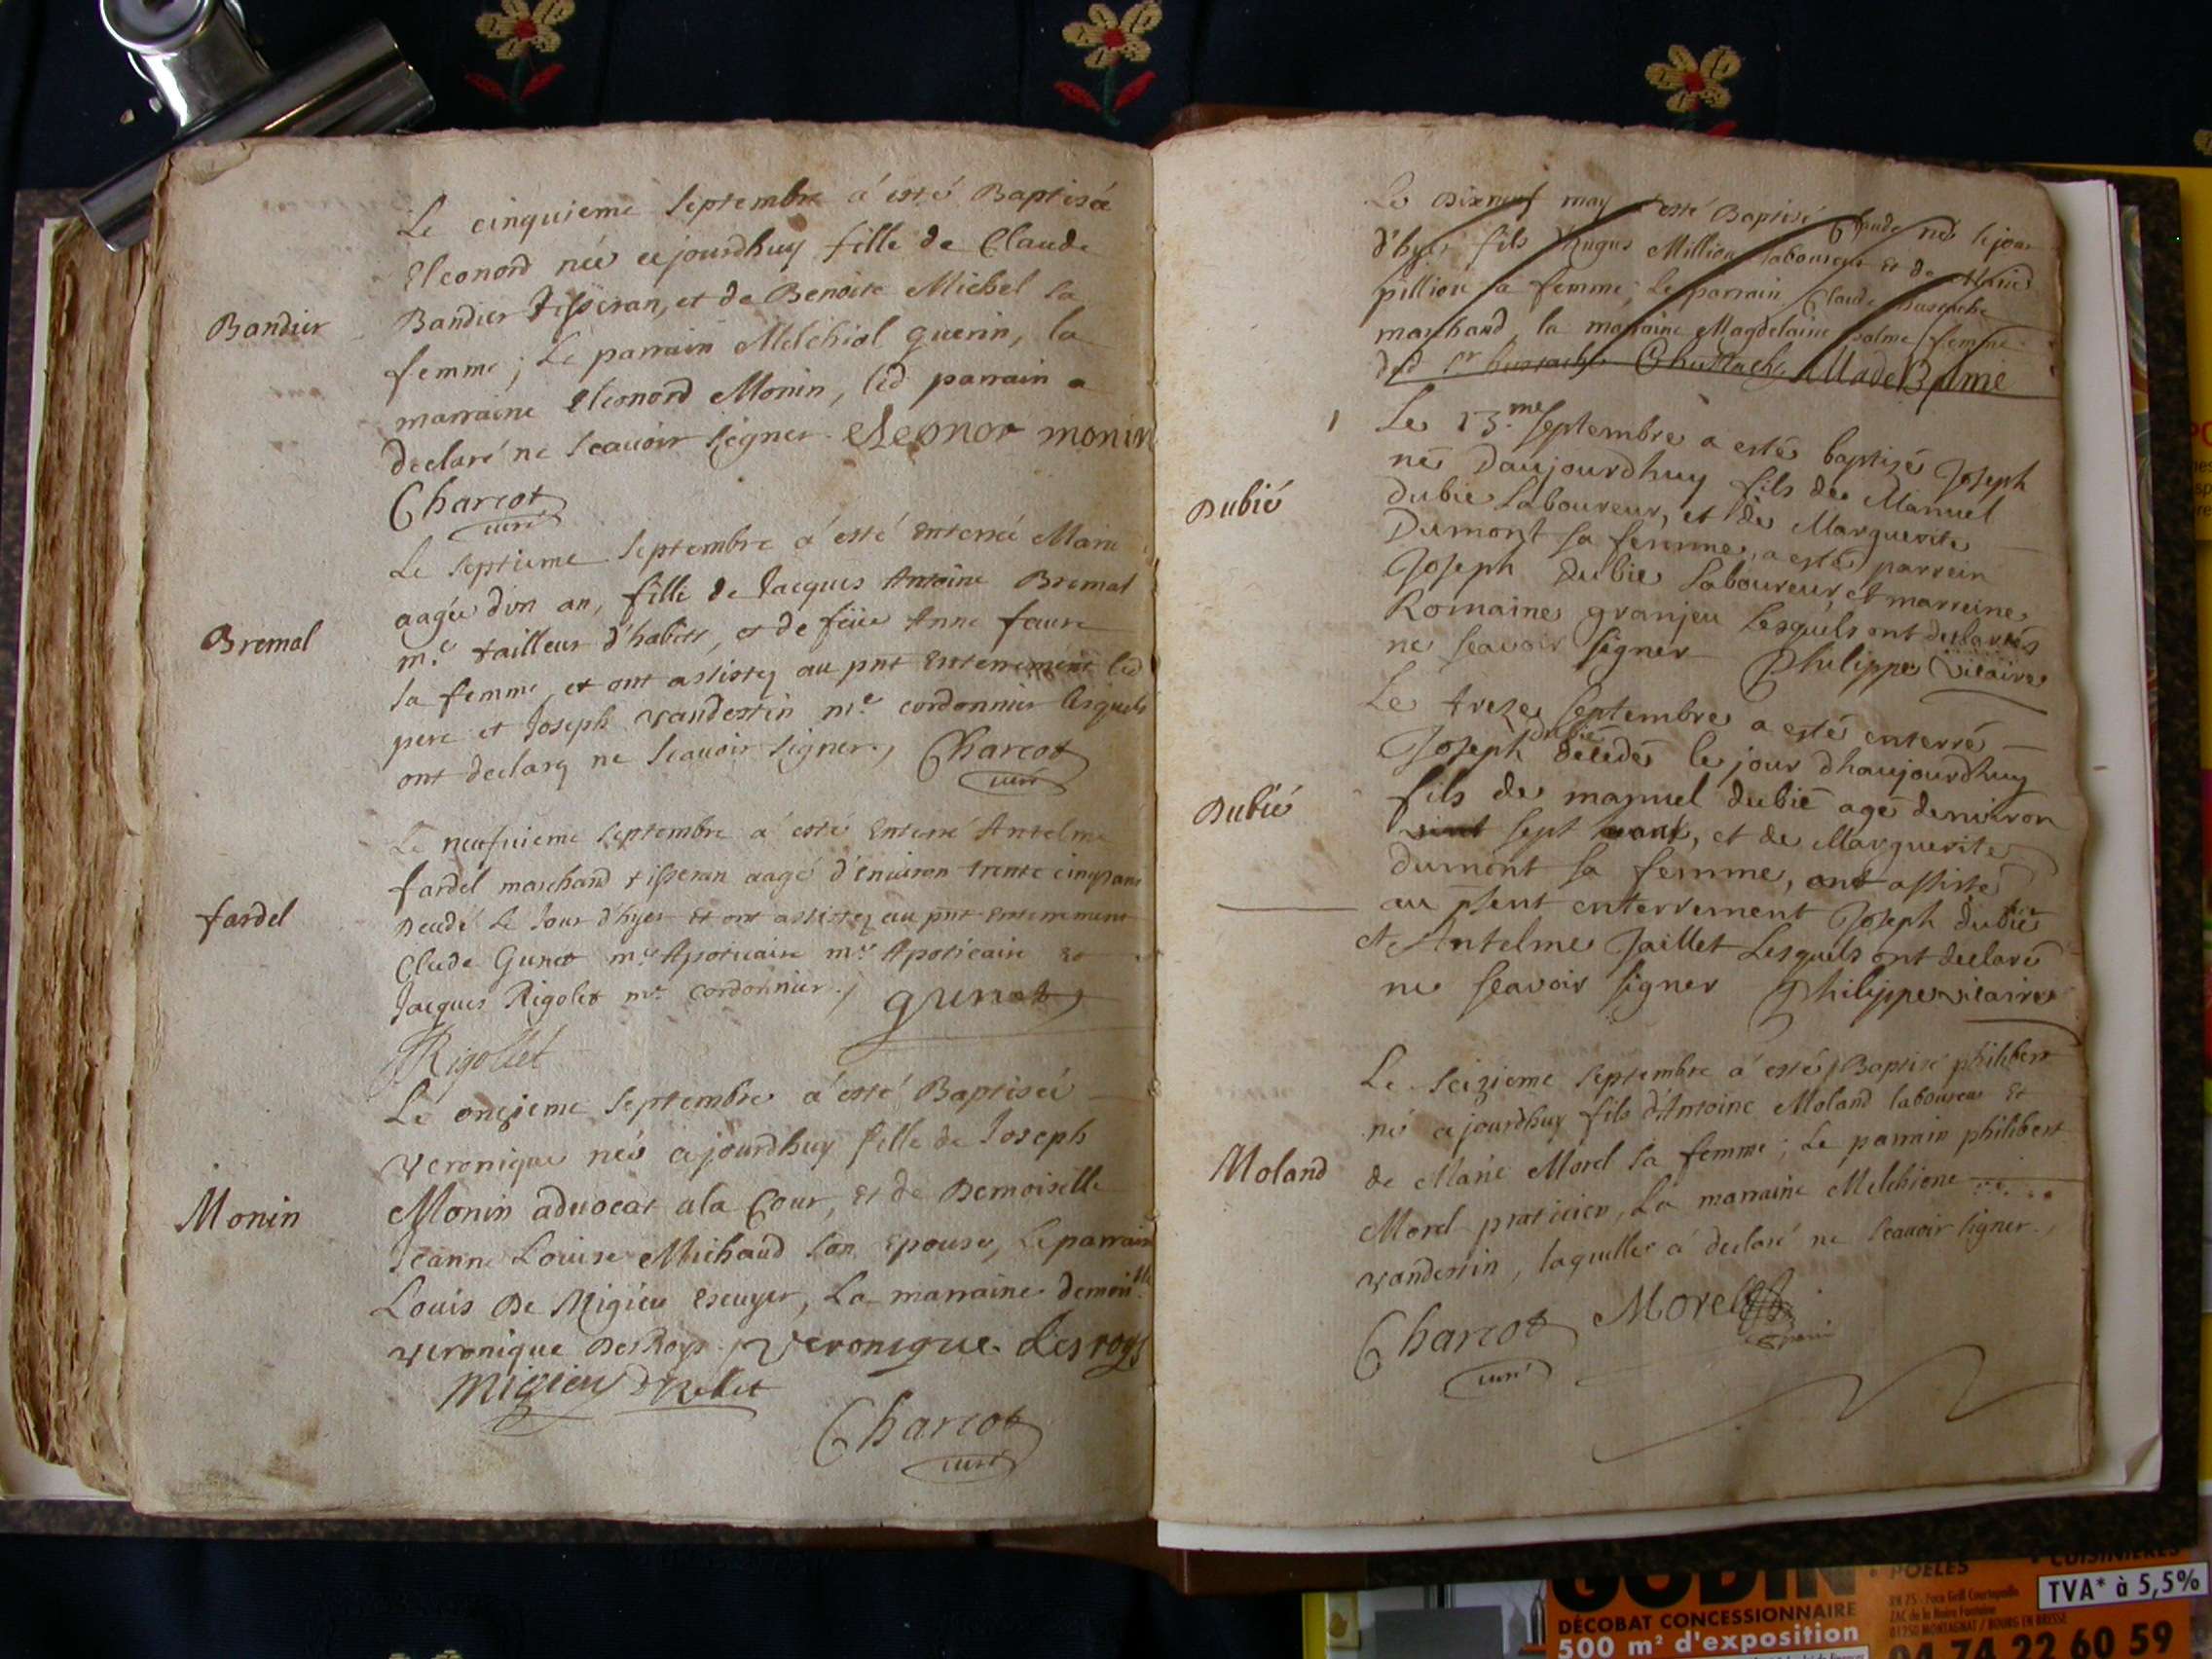 Le cinquieme septembre à esté Baptisée
Eleonord née cejourdhuy fille de Claude
Bandier
Bandier tisseran, et de Benoite Michel sa
femme; Le parrain Melchiol guerin, la
marraine Eleonord Monin, led parrain a
declaré ne scauoir signer. eleonor monin
Charcot
curé
Le septieme septembre à esté enterrée Marie
aagée d'vn an, fille de Jacques Antoine Bremal
Bremal
me. tailleur d'habits, et de feüe Anne faure
sa femme, et ont assistez au pnt enterrement led
pere et Joseph vandestin me. cordonnier lesquels
ont declarez ne scauoir signer./ Charcot
curé
Le neufuieme septembre à esté enterré Antelme
fardel
fardel marchand tisseran aagé d'enuiron trente cinq ans
decedé le jour d'hyer et ont assistez au pnt enterrement
Clude Gunet me. Apoticaire me. Apoticaire et
Jacques Rigolet me. cordonnier./ gunet
Rigollet
Le onzieme septembre à esté Baptiseé
veronique née cejourdhuy fille de Joseph
Monin
Monin aduocat a la Cour, et de Demoiselle
Jeanne Louise Michaud son epouse, Le parrain
Louis De Migieu escuyer, La marraine demoille.
veronique Des Roys./ veronique. des roys
migieu
Charcot
curé
Le dixneuf may esté Baptisé Claude né le jour
d'hyer fils d'hugues Million laboureur et de Marie
pillion sa femme; Le parrain Claude
marchand, la marraine Magdelaine balme femme
dud sr
1 Le 13.me septembre a esté baptizé Joseph
né daujourdhuy fils de Manuel
Dubié
dubie Laboureur, et de Marguerite
Dumont sa femme, a esté parrein
Joseph dubie Laboureur, et marreine
Romaine granjeu Lesquels ont declarés
ne scavoir signer Philippe vicaire
Le treze septembre a esté enterré
dubie
Joseph decedé le jour dhaujourdhuy
Dubié
fils de manuel dubié agé denviron
sept, et de Marguerite
dumont sa femme, ont assisté
au pnt enterrement Joseph dubie
et Antelme Jaillet Lesquels ont declaré
ne scavoir signer Philippe vicaire
Le seizieme septembre à esté Baptisé philibert
né cejourdhuy fils d'Antoine Moland laboureur et
Moland
de Marie Morel sa femme; Le parrain philibert
Morel praticien, La marraine Melchione
vandestin, laquelle à declaré ne scauoir signer.
Charcot Morel
curé
GODIN
DÉCOBAT CONCESSIONNAIRE
500 m² d'exposition
POELES
CUISINIÈRES
RN 75 - Face Grill Courtepaille
ZAC de la Noire Fontaine
01250 MONTAGNAT / BOURG EN BRESSE
TVA* à 5,5%
04 74 22 60 59